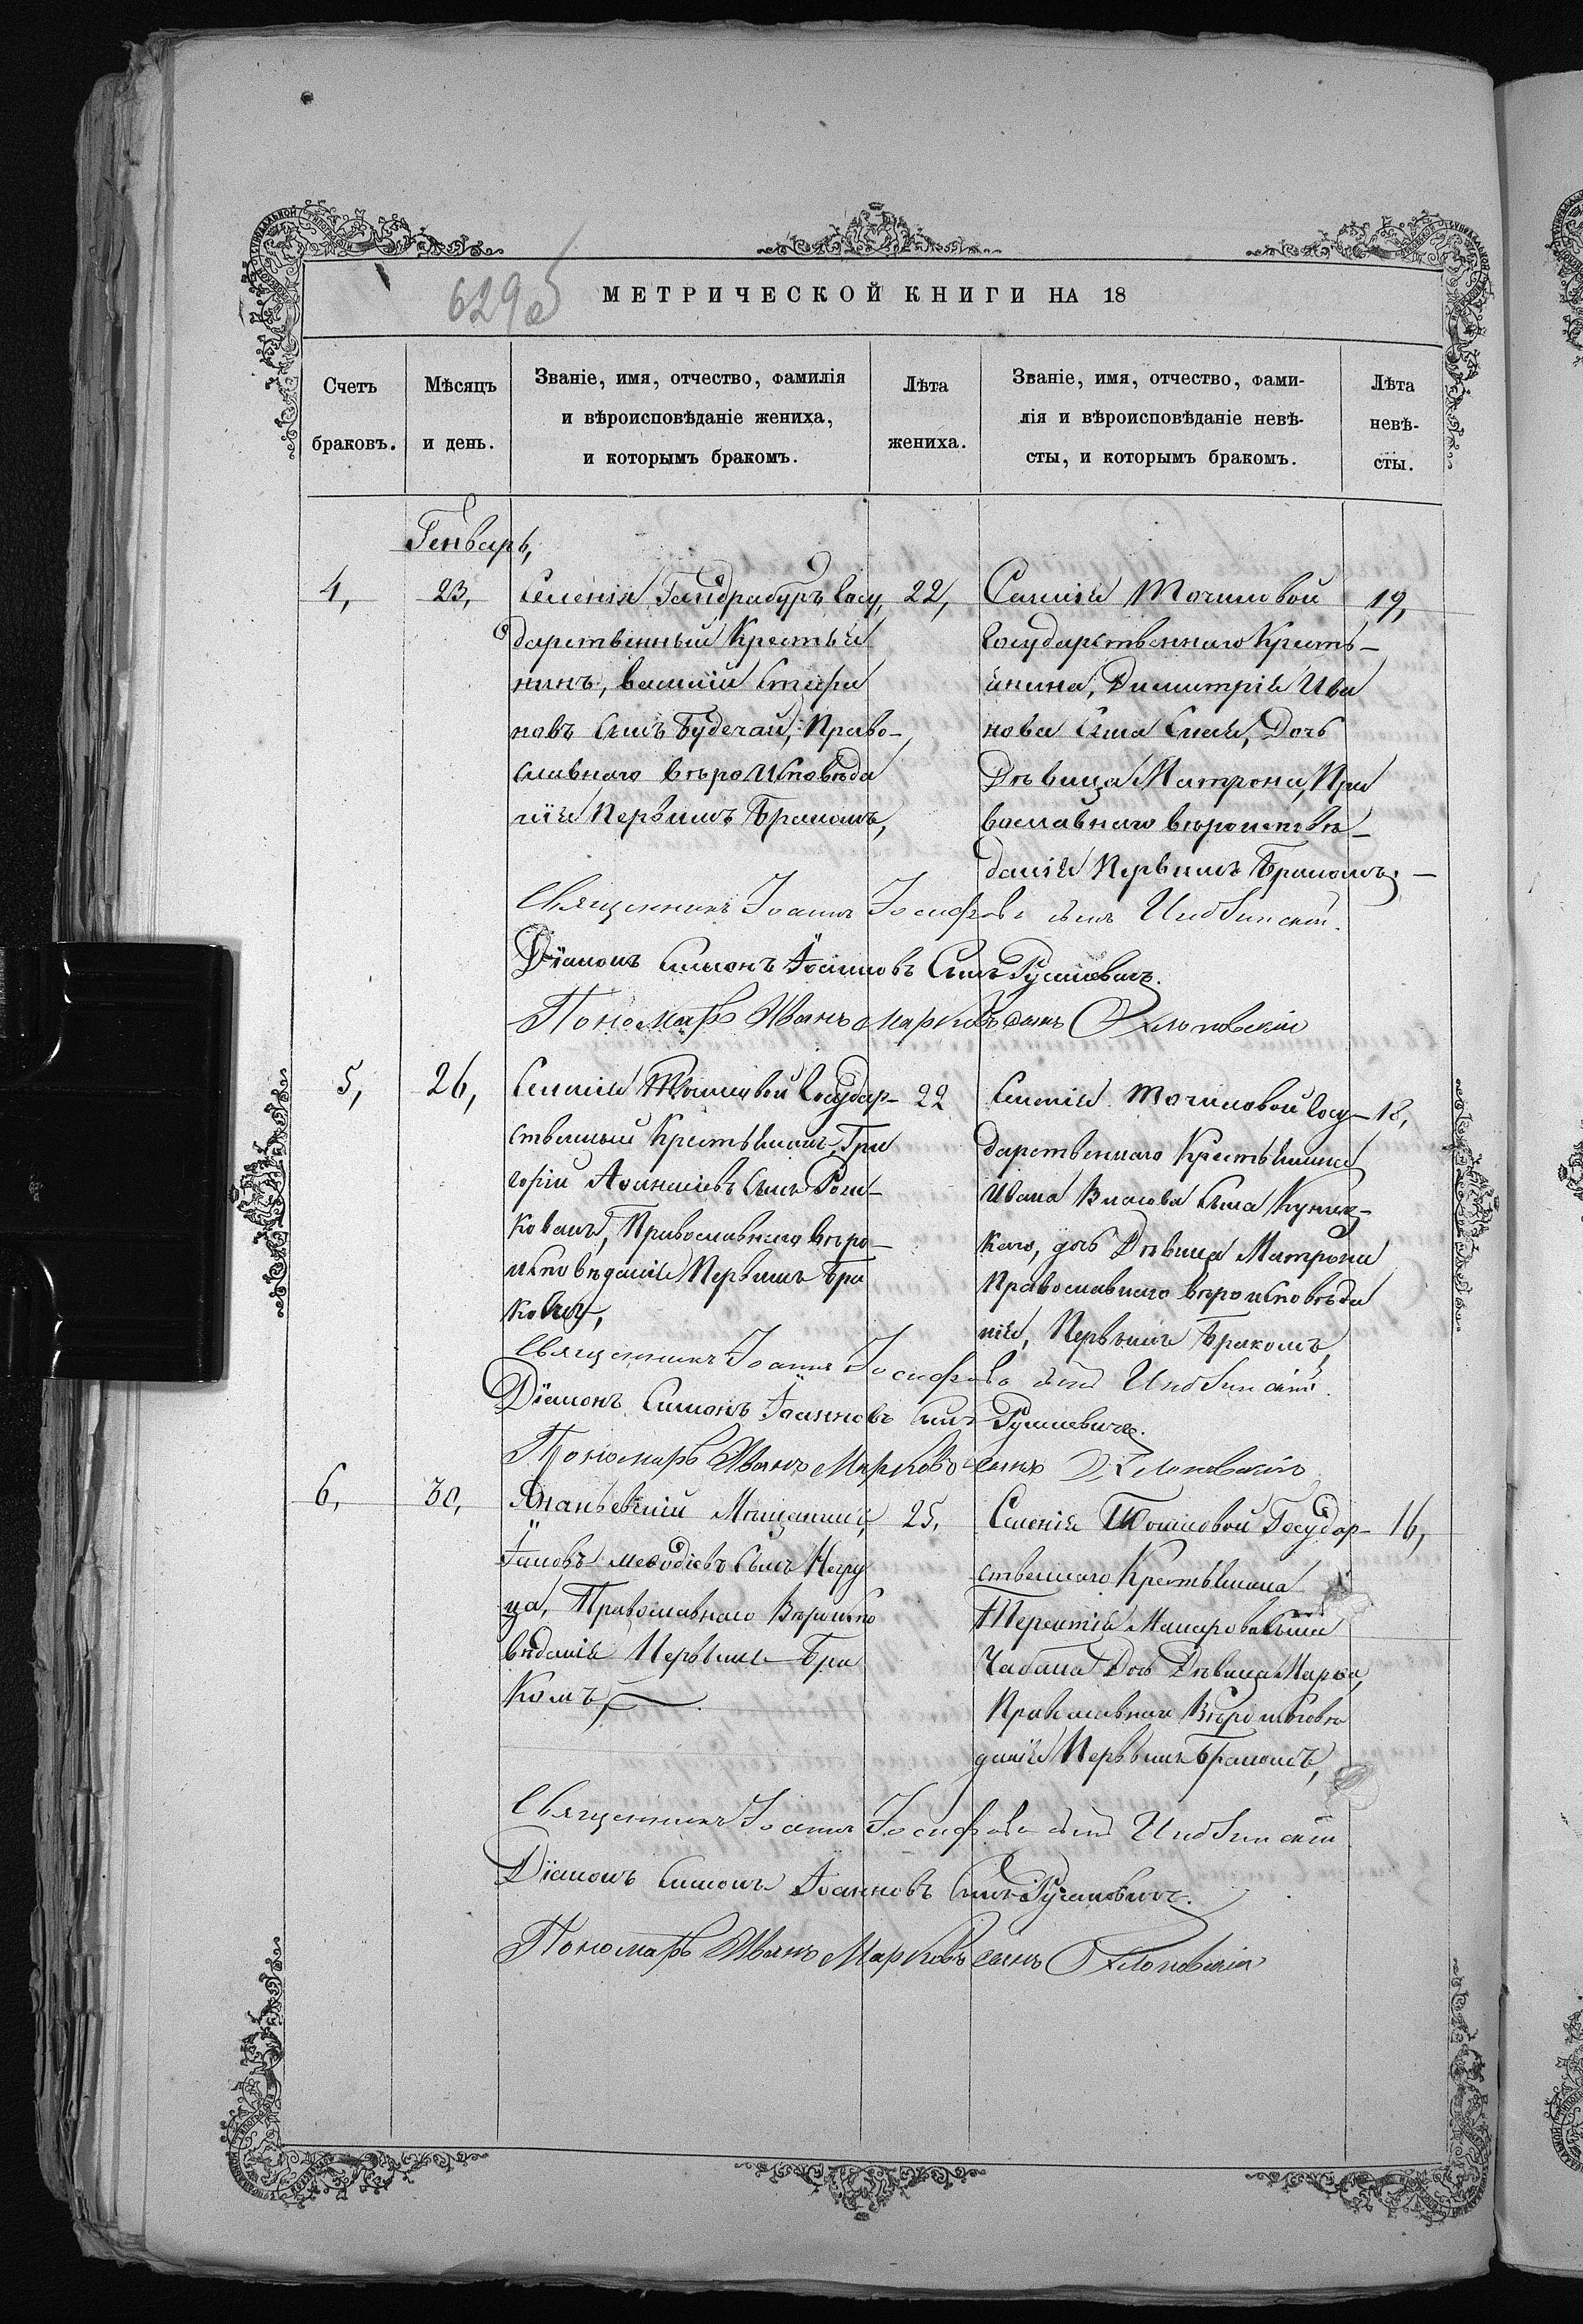 629об
МЕТРИЧЕСКОЙ КНИГИ НА 18
Счетъ браковъ.
Мѣсяцъ и день.
Званіе, имя, отчество, фамилія
и вѣроисповѣданіе жениха,
и которымъ бракомъ.
Лѣта жениха.
Званіе, имя, отчество, фами-
лія и вѣроисповѣданіе невѣ-
сты, и которымъ бракомъ.
Лѣта невѣ-
сты.
Генварь,
4,
23,
Селенія Гандрабуръ Госу,
дарственный Крестья
нинъ, Василій Стефа
новъ Сынъ Будечай, Право-
славнаго вѣроИсповѣда
нія Первымъ Бракомъ,
22,
Селенія Точиловой
Государственнаго Кресть-
янина, Димитрія Ива
нова Сына Дочь
Дѣвица Матрона, Пра
вославнаго вѣроисповѣ-
данія Первымъ Бракомъ,
19,
Священникъ Іоаннъ Іосифовъ сынъ
Діаконъ Симонъ Іоанновъ Сынъ
Пономарь Иванъ Марковъ сынъ
5,
26,
Селенія Точиловой Государ-
ственный Крестьянинъ, Гри
горій Аѳанасіевъ Сынъ
Православнаго вѣро-
исповѣданія Первымъ Бра
комъ,
22
Селенія Точиловой Госу-
дарственнаго Крестьянина
Ивана Власова Сына Куниц-
каго, дочь Дѣвица Матрона
Православнаго вѣроисповѣда
нія, Первымъ Бракомъ,
18,
Священникъ Іоаннъ Іосифовъ сынъ
Діаконъ Симонъ Іоанновъ Сынъ
Пономарь Иванъ Марковъ сынъ
6,
30,
Ананьевскій Мещанинъ,
Іаковъ меѳодіевъ Сынъ Негру
ца, Православнаго Вѣроиспо
вѣданія Первымъ Бра
комъ,
25,
Селенія Точиловой Государ-
ственнаго Крестьянина
Терентія Макарова Сына
Чабана Дочь Дѣвица Марѳа,
Православнаго Вѣроисповѣ
данія Первымъ Бракомъ,
16,
Священникъ Іоаннъ Іосифовъ сынъ
Діаконъ Симонъ Іоанновъ Сынъ
Пономарь Иванъ Марковъ сынъ